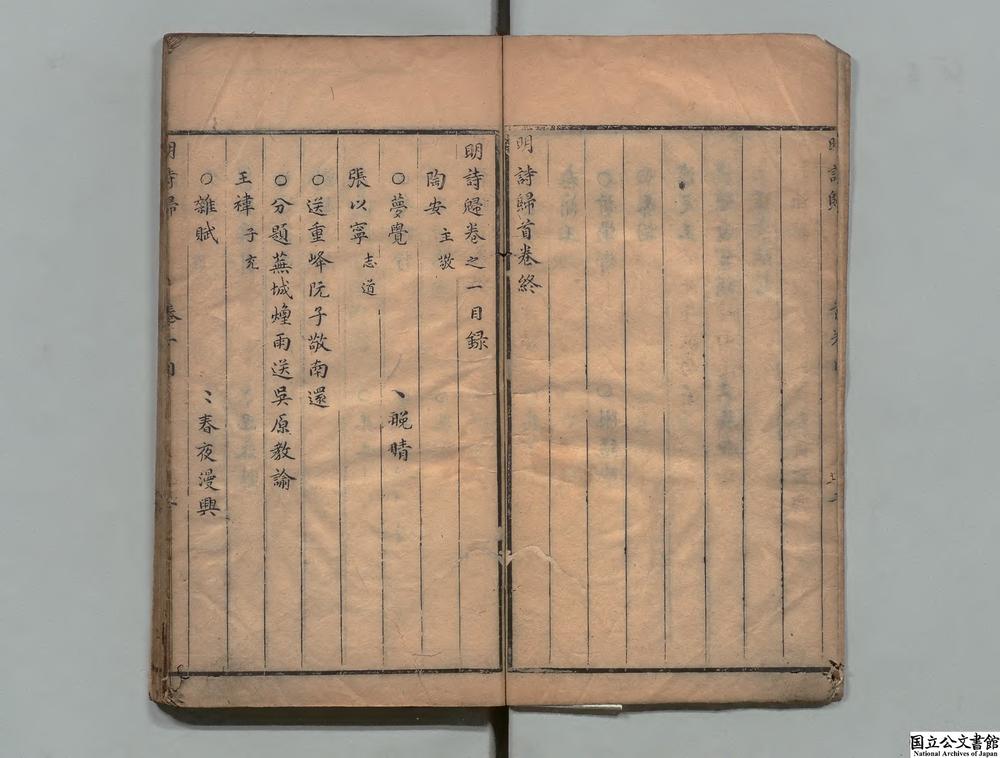 明詩歸首卷終
明詩歸卷之一目録
陶安 主敬
○夢覺 丶晚晴
張以寧 志道
○送重峰阮子敬南還
○分題蕪城煙雨送吳原教諭
王禕 子充
○雜賦 〻春夜漫興
明詩歸
国立公文書館
National Archives of Japan